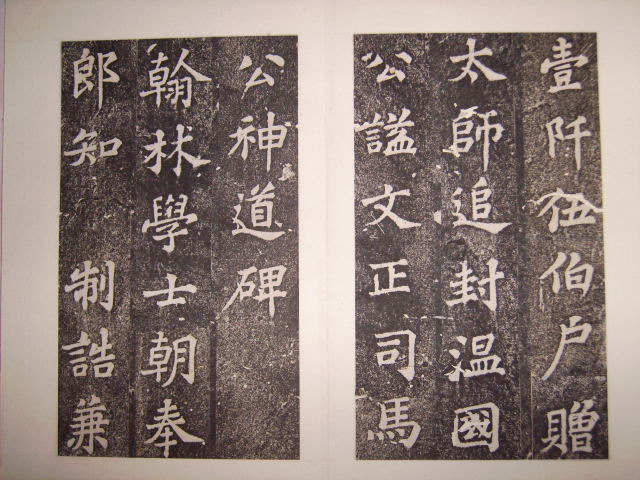 壹阡伍伯户贈
太師追封温國
公謚文正司馬
公神道碑
翰林學士朝奉
郎知 制誥兼